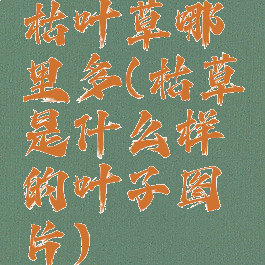 枯叶草哪
里多(枯草
是什么样
的叶子图
片)